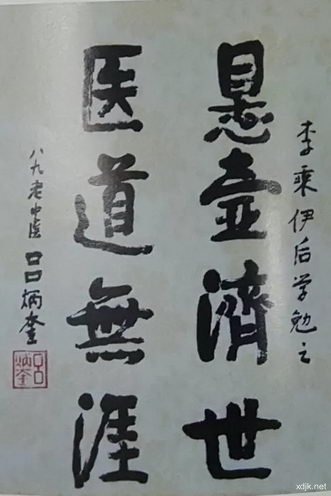 李乘伊后学勉之
悬壺濟世
医道無涯
八九老中医吕炳奎
吕炳奎
xdjk.net